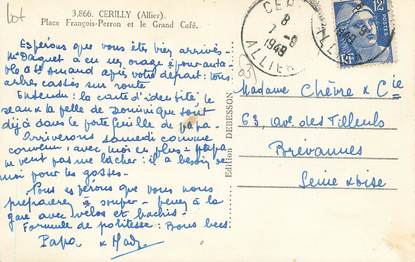 lot
3.866. CERILLY (Allier).
Place François-Perron et le Grand Café.
Espérons que vous êtes bien arrivés
Mr Daquet a eu un orage épouvantable
à St Amand après votre départ : tous
arbres cassés sur route
Entendu : la carte d'identité, le
seau & la pelle de Dominique sont
déjà dans le porte feuille de papa
Arriverons samedi comme
convenu, avec moi en plus - papa
ne veut pas me lâcher : il a besoin de
moi pour les gosses.
Nous espérons que vous nous
preparerez à souper - venez à la
gare avec vélos et
Formule de politesse : Bons becs
Papa &
Edition DEBESSON
CERILLY
8
7-9
1949
ALLIER
12F
Madame Chèvre & Cie
63, ave des Tilleuls
Brévannes
Seine & Oise